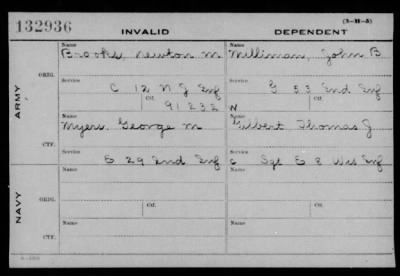 132936
INVALID
DEPENDENT
(3-H-5)
Name
Brooks Newton M
Name
Milliman, John B
ARMY
ORIG.
Service
C 12 N J Inf
Service
G 53 Ind Inf
Ctf.
91232
Ctf.
W
CTF.
Name
Myers, George M
Name
Gilbert Thomas J
Service
E 29 Ind Inf
Service
C Sgt E 8 Wis Inf
NAVY
ORIG.
Name
Name
Ctf.
Ctf.
CTF.
Name
Name